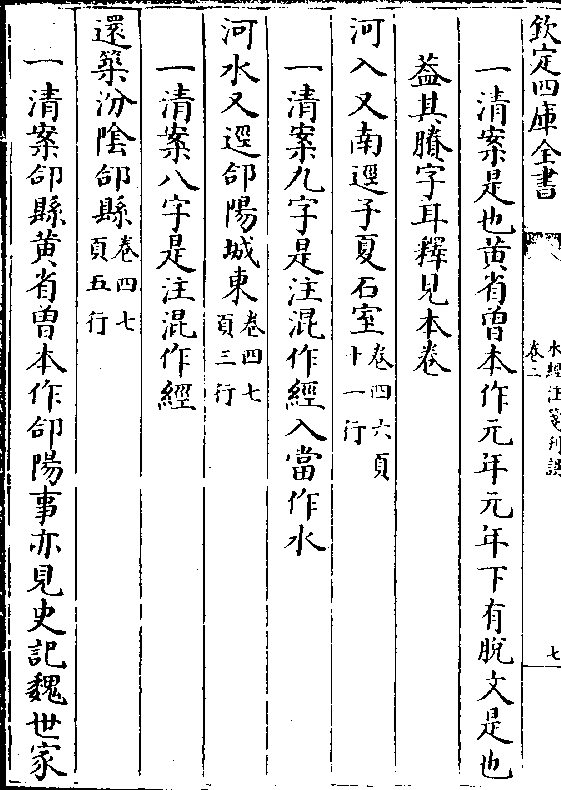 欽定四庫全書
水經注箋刊誤
卷二
七
一清案是也黄省曽本作元年元年下有脫文是也
葢其賸字耳釋見本卷
河入又南逕子夏石室卷四六頁十一行
一清案九字是注混作經入當作水
河水又逕郃陽城東卷四七頁三行
一清案八字是注混作經
還築汾陰郃縣卷四七頁五行
一清案郃縣黄省曽本作郃陽事亦見史記魏世家